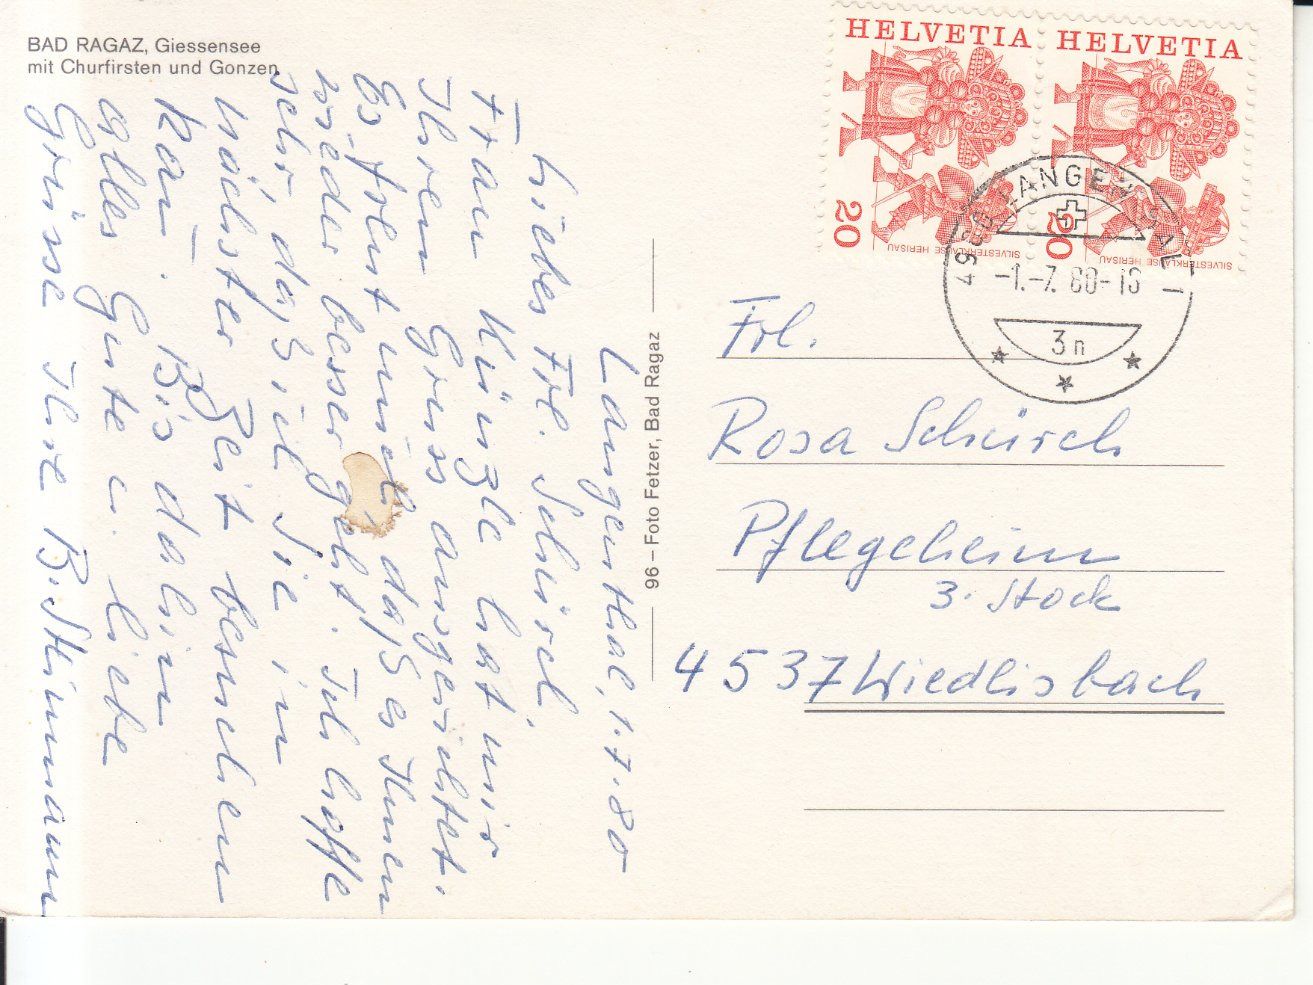 BAD RAGAZ, Giessensee
mit Churfirsten und Gonzen
Langenthal, 1.7.80
Liebes Frl. Schürch,
Frau Künzle hat mir
Ihren Gruss ausgerichtet.
Es freut mich, daß es Ihnen
wieder besser geht. Ich hoffe
sehr, daß ich Sie in
nächster Zeit besuchen
kan̄. Bis dahin
alles Gute u. liebe
Grüsse Ihre B. Stinimann
96 – Foto Fetzer, Bad Ragaz
HELVETIA
20
SILVESTERKLÄUSE HERISAU
HELVETIA
20
SILVESTERKLÄUSE HERISAU
4900 LANGENTHAL 1
-1.-7.80-16
3n
Frl.
Rosa Schürch
Pflegeheim
3. Stock
4537 Wiedlisbach